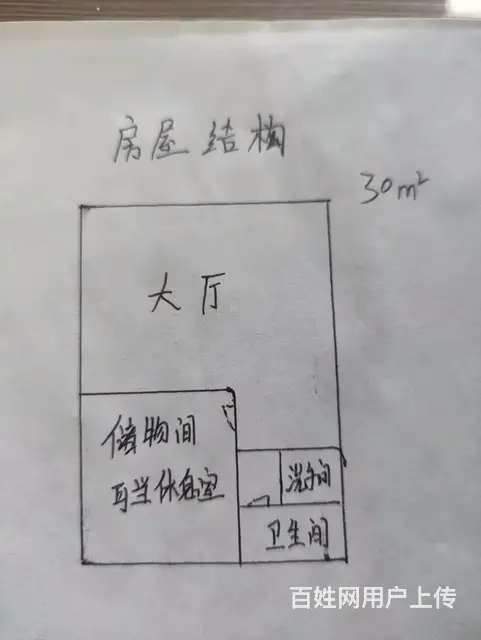 房屋结构
30m²
大厅
储物间
可当休息室
洗手间
卫生间
百姓网用户上传